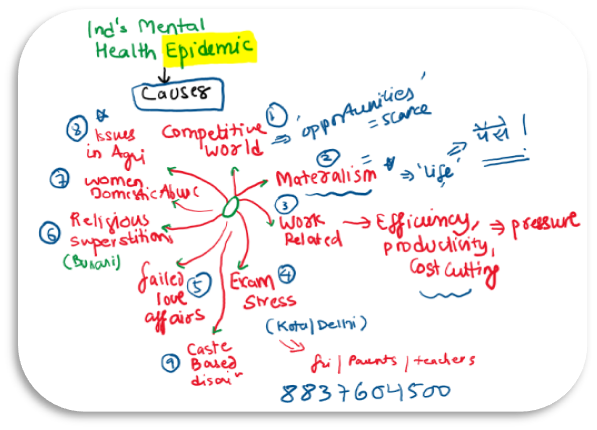 Ind's Mental
Health Epidemic
Causes
① Competitive
World
⇒ 'opportunities'
= scarce
② Materalism
= ⇒ 'Life' ⇒ पैसे |
③ Work
Related → Efficiency,
productivity,
Cost Cutting
⇒ pressure
④ Exam
Stress
(Kota/Delhi)
fri / Parents / teachers
⑤ failed
love
affairs
⑥ Religious
superstition
(Burari)
⑦ women
Domestic Abuse
⑧ Issues
in Agri
⑨ Caste
Based
8837604500